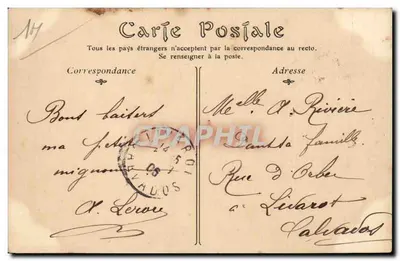 14
Carte Postale
Tous les pays étrangers n'acceptent pas la correspondance au recto.
Se renseigner à la poste.
Correspondance
Adresse
Bons baisers
ma petite
mignonne
A. Leroy
Melle A. Rivière
famille
Rue d'Orbec
à Livarot
Calvados
CALVADOS
CPAPHIL